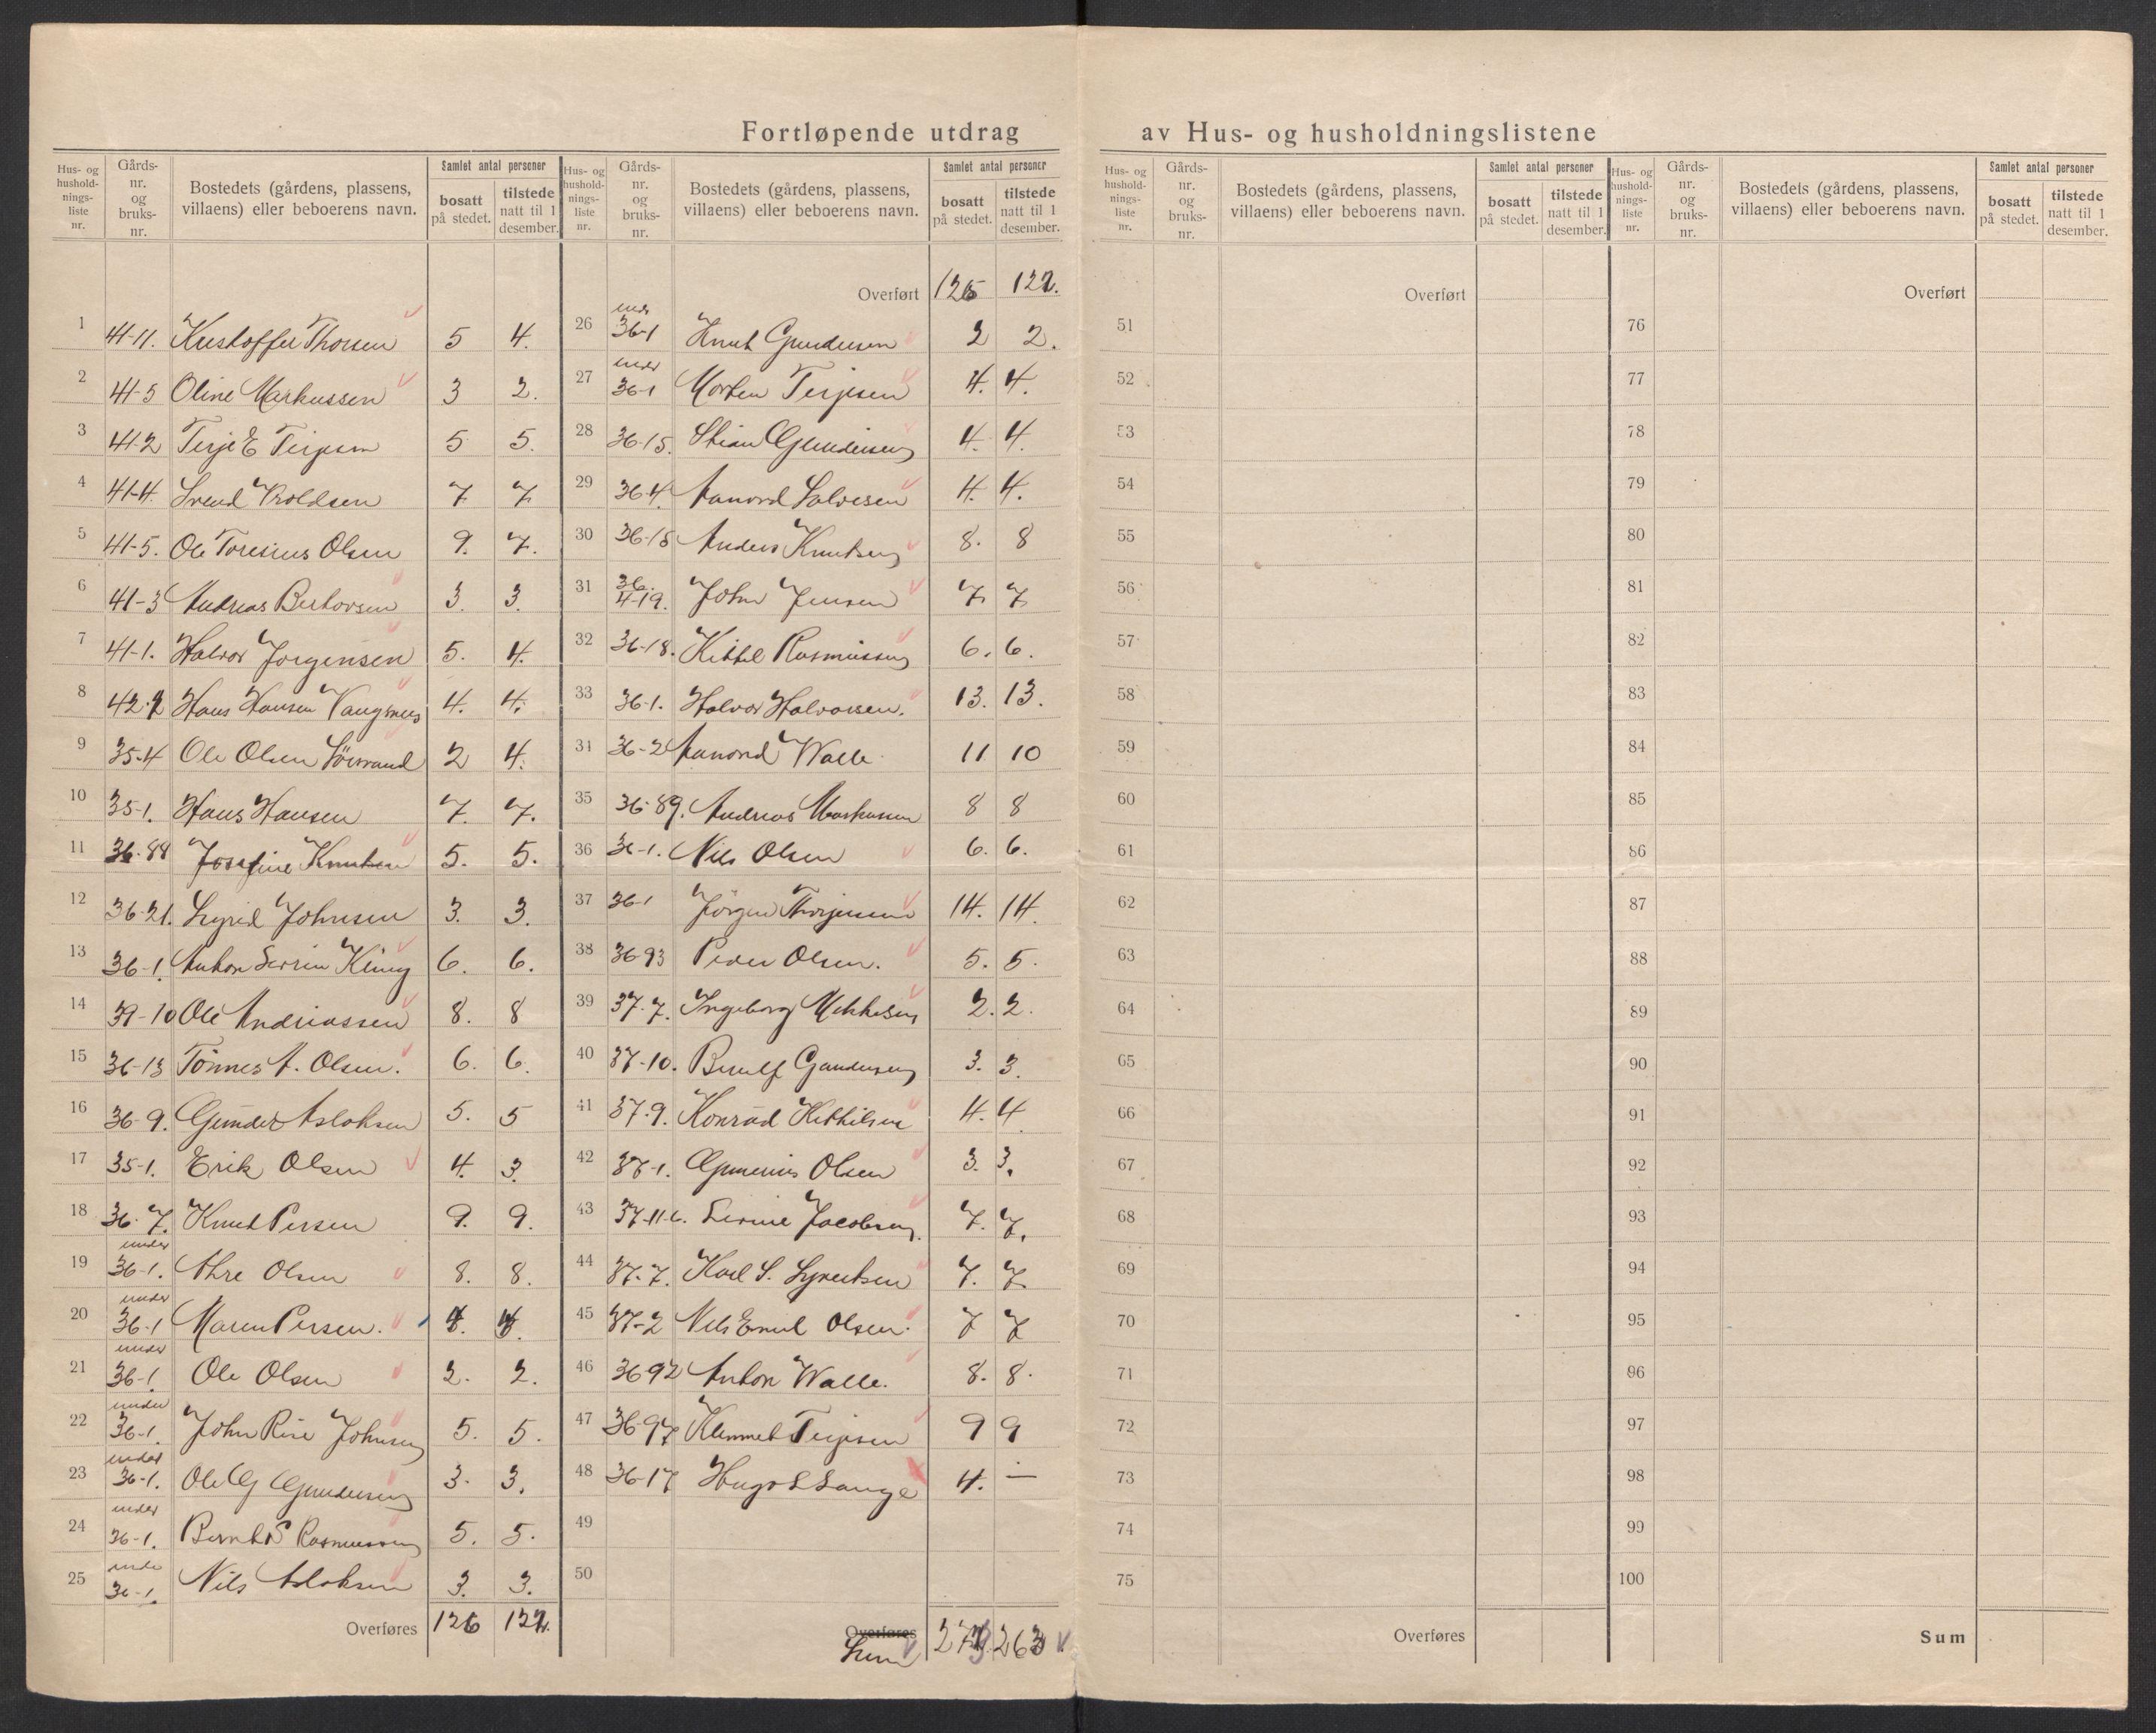 Fortløpende utdrag av Hus- og husholdningslistene
Hus- og hushold-nings-liste nr. | Gårds-nr. og bruks-nr. | Bostedets (gårdens, plassens, villaens) eller beboerens navn. | Samlet antal personer | bosatt på stedet. | tilstede natt til 1 desember.
1 41-11. Kristoffer Thorsen 5 4.
2 41-5 Oline Markussen 3 2.
3 41-2 Terje E Terjesen 5 5.
4 41-4. Svend Vroldsen 7 7
5 41-5. Ole Toresius Olsen 9. 7.
6 41-3 Andreas Bertovsen 3. 3.
7 41-1. Halvor Jørgensen 5. 4.
8 42-2 Hans Hansen Vangsnes 4. 4.
9 35-4 Ole Olsen 2 4.
10 35-1. Hans Hansen 7. 7.
11 36-88 Josefine Knutsen 5. 5.
12 36-21. Sigrid Johnsen 3. 3.
13 36-1. Anton Serrin Kling 6. 6.
14 39-10 Ole Andreassen 8. 8
15 36-13 Tønnes A. Olsen. 6. 6.
16 36-9. Gunder Aslaksen 5. 5
17 35-1. Erik Olsen 4. 3.
18 36-7. Knut Persen 9. 9.
19 under 36-1. Akre Olsen 8. 8.
20 under 36-1 Maren Persen. 4. 4.
21 under 36-1. Ole Olsen 2. 2.
22 under 36-1. John Rise Johnsen 5. 5.
23 under 36-1. Ole G Gundersen 3. 3.
24 under 36-1. Bernt S Rasmussen 5. 5.
25 under 36-1. Nils Aslaksen 3. 3.
Overføres 126 122.
Hus- og hushold-nings-liste nr. | Gårds-nr. og bruks-nr. | Bostedets (gårdens, plassens, villaens) eller beboerens navn. | Samlet antal personer | bosatt på stedet. | tilstede natt til 1 desember.
Overført 126 122.
26 under 36-1 Knut Gundersen 2 2.
27 under 36-1 Morten Terjesen 4. 4.
28 36-15. Stian Gundersen 4. 4.
29 36-4. Aanond Salvesen 4. 4.
30 36-15 Anders Knutsen 8. 8
31 36. 4-19. John Jensen 7. 7
32 36-18. Kittel Rasmussen 6. 6.
33 36-1. Halvor Halvorsen. 13. 13.
34 36-2 Aanond Walle. 11 10
35 36-89. Andreas Markussen 8 8
36 36-1. Nils Olsen 6. 6.
37 36-1 Jörgen Thorjussen 14. 14.
38 36-93 Peder Olsen. 5. 5.
39 37-7. Ingeborg Mikkelsen 2. 2.
40 37-10. Gundersen 3. 3.
41 37-9. Konrad Kittilsen 4. 4
42 37-1. Gunerius Olsen 3. 3.
43 37-11-6. Serine Jacobsen. 7. 7.
44 37-7. Karl S. Syvertsen 7. 7.
45 37-2 Nils Emil Olsen. 7 7
46 36 92 Anton Walle. 8. 8.
47 36-97 Klemmet Terjesen 9 9
48 36-17 Hugo S Lange 4. —
49
50
Overføres
Sum 273 263
Hus- og hushold-nings-liste nr. | Gårds-nr. og bruks-nr. | Bostedets (gårdens, plassens, villaens) eller beboerens navn. | Samlet antal personer | bosatt på stedet. | tilstede natt til 1 desember.
Overført
51
52
53
54
55
56
57
58
59
60
61
62
63
64
65
66
67
68
69
70
71
72
73
74
75
Overføres
Hus- og hushold-nings-liste nr. | Gårds-nr. og bruks-nr. | Bostedets (gårdens, plassens, villaens) eller beboerens navn. | Samlet antal personer | bosatt på stedet. | tilstede natt til 1 desember.
Overført
76
77
78
79
80
81
82
83
84
85
86
87
88
89
90
91
92
93
94
95
96
97
98
99
100
Sum